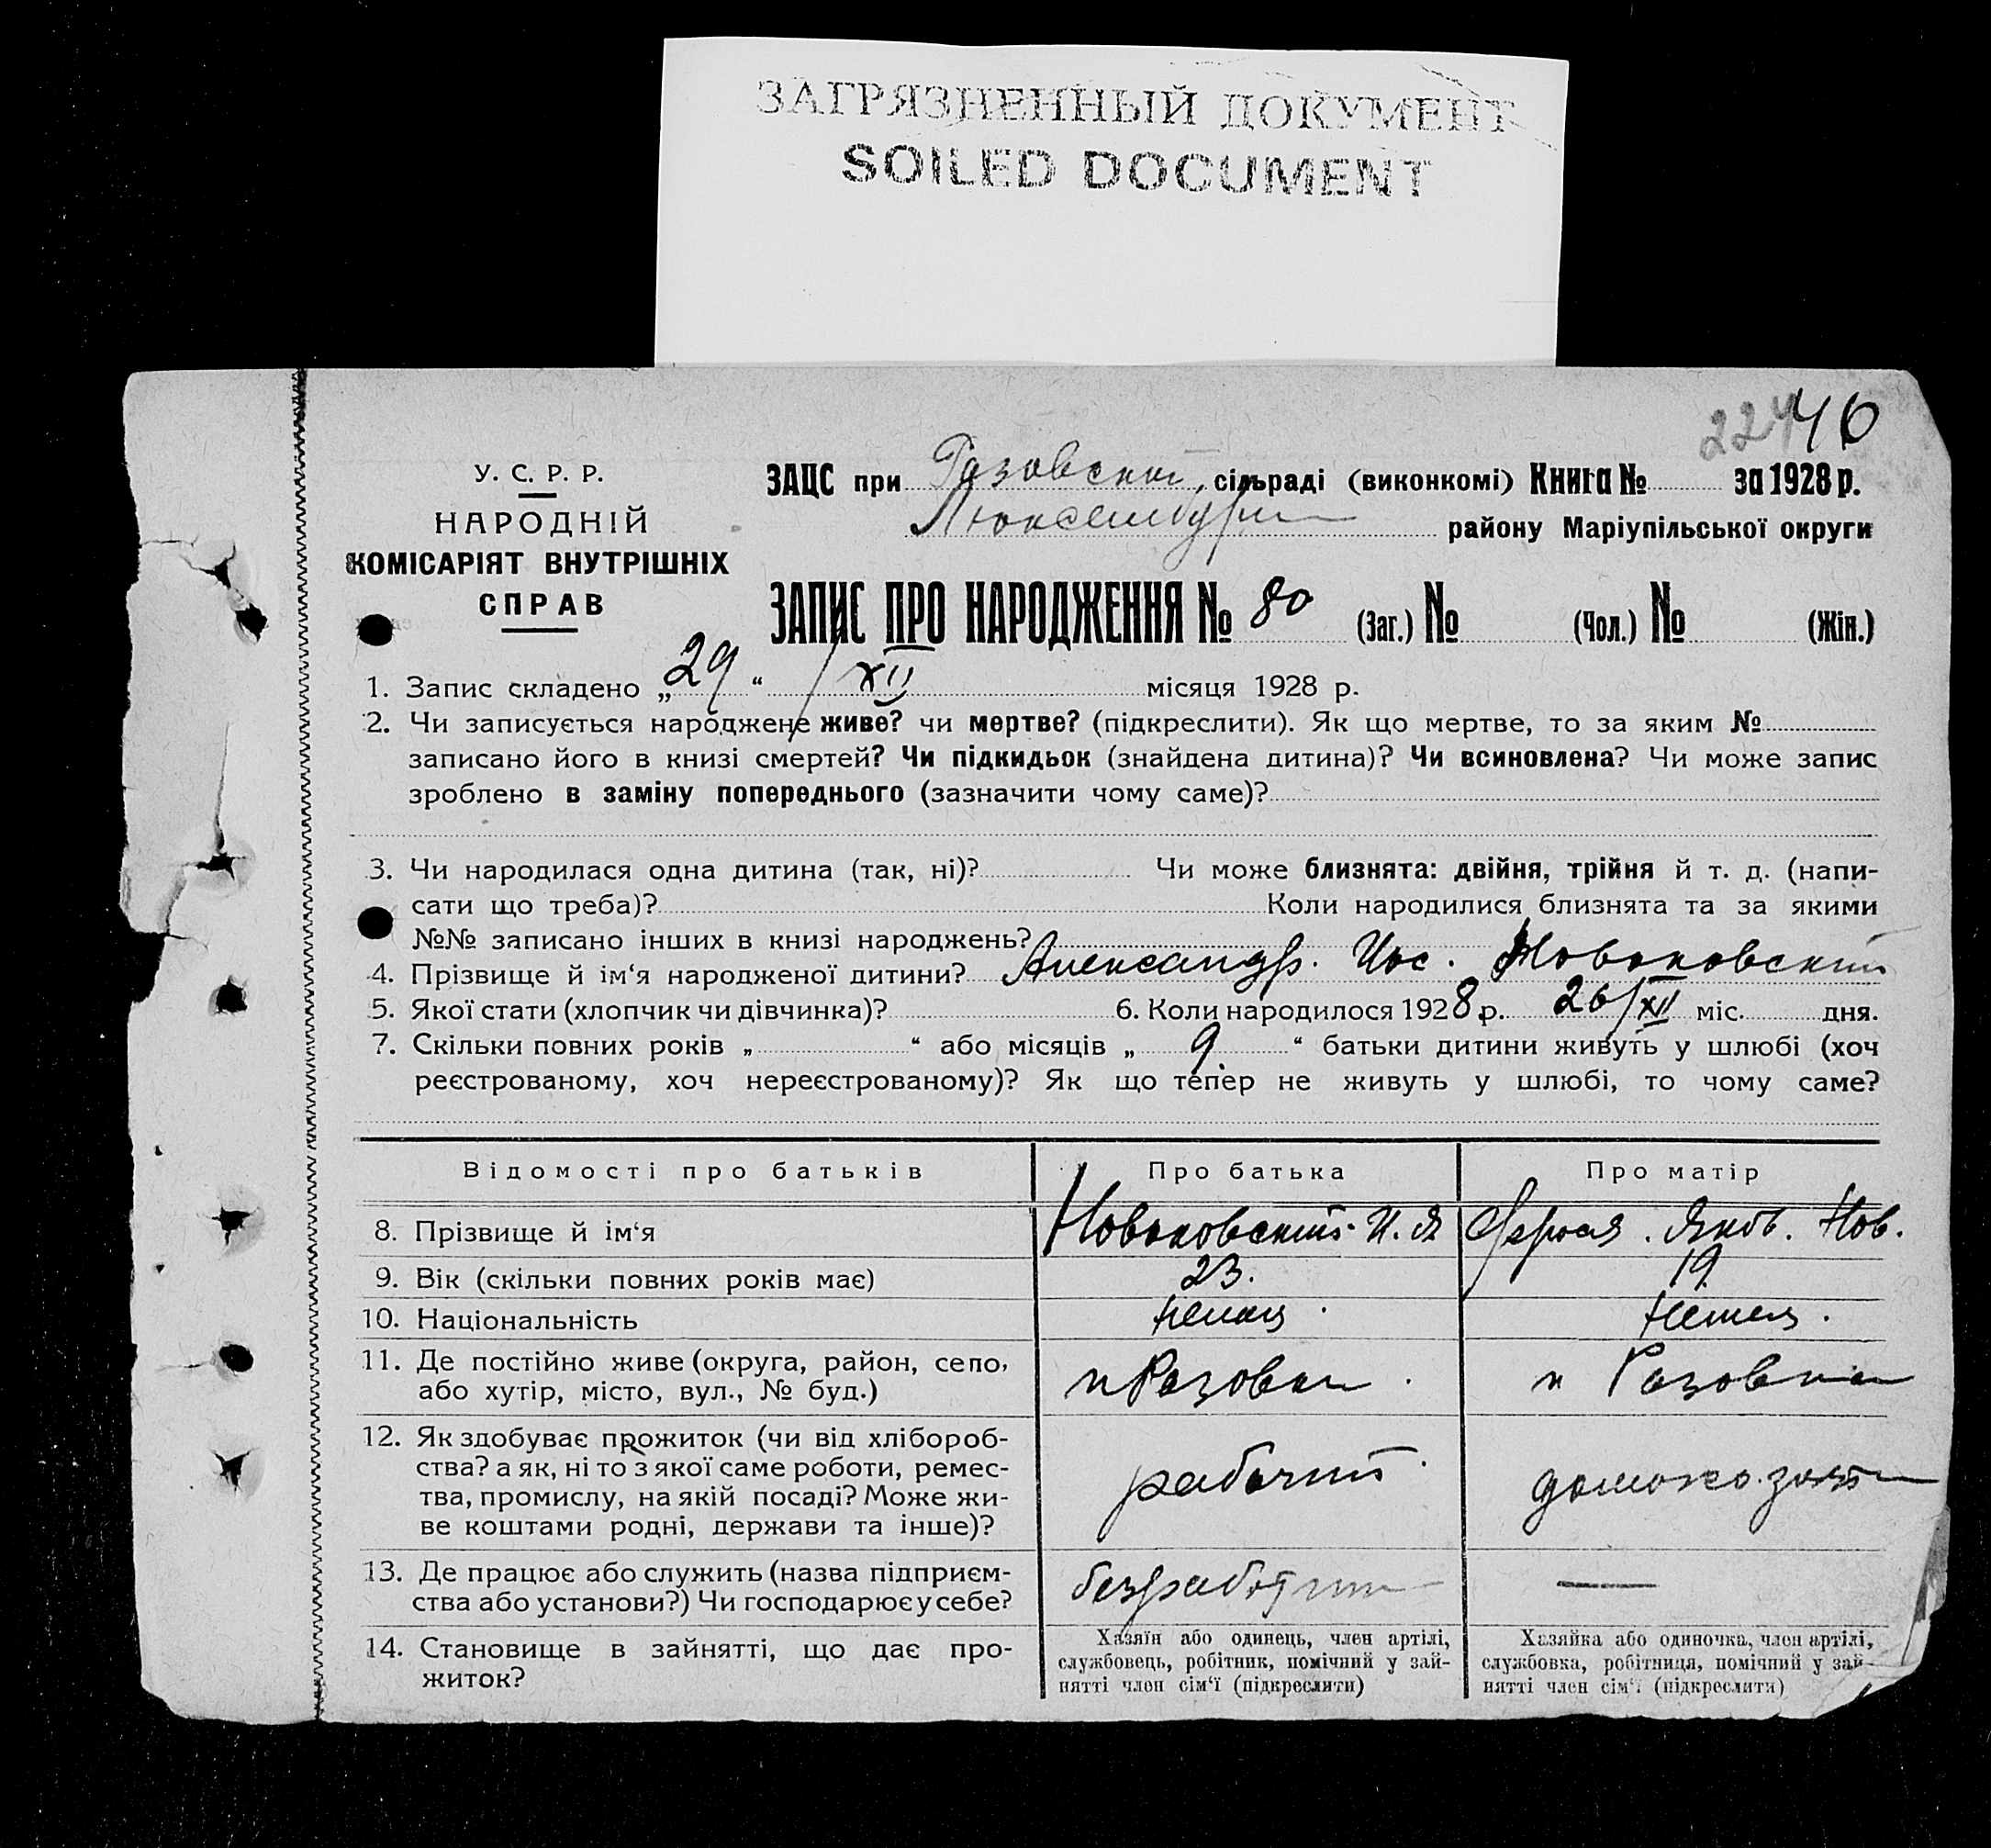 ЗАГРЯЗНЕННЫЙ ДОКУМЕНТ
SOILED DOCUMENT
224 46
У. С. Р. Р.
НАРОДНІЙ
КОМІСАРІЯТ ВНУТРІШНІХ
СПРАВ
ЗАЦС при Розовской, сільраді (виконкомі) Книга № за 1928 р.
Люксембург району Маріупільської округи
ЗАПИС ПРО НАРОДЖЕННЯ № 80 (Заг.) № (Чол.) № (Жін.)
1. Запис складено „29“ / XII місяця 1928 р.
2. Чи записується народжене живе? чи мертве? (підкреслити). Як що мертве, то за яким №
записано його в книзі смертей? Чи підкидьок (знайдена дитина)? Чи всиновлена? Чи може запис
зроблено в заміну попереднього (зазначити чому саме)?
3. Чи народилася одна дитина (так, ні)? Чи може близнята: двійня, трійня й т. д. (напи-
сати що треба)? Коли народилися близнята та за якими
№№ записано інших в книзі народжень?
4. Прізвище й ім‘я народженої дитини? Александр. Иос. Новоковский
5. Якої стати (хлопчик чи дівчинка)? 6. Коли народилося 1928 р. 26/XII міс. дня.
7. Скільки повних років „ “ або місяців „ 9. “ батьки дитини живуть у шлюбі (хоч
реєстрованому, хоч нереєстрованому)? Як що тепер не живуть у шлюбі, то чому саме?
Відомості про батьків Про батька Про матір
8. Прізвище й ім‘я Новоковский И. Я Яков. Нов.
9. Вік (скільки повних років має) 23. 19
10. Національність немец. немец.
11. Де постійно живе (округа, район, село,
або хутір, місто, вул., № буд.) к Розовка. к Розовка
12. Як здобуває прожиток (чи від хлібороб-
ства? а як, ні то з якої саме роботи, ремес-
тва, промислу, на якій посаді? Може жи-
ве коштами родні, держави та інше)?
рабочий. домохозяй
13. Де працює або служить (назва підприєм-
ства або установи?) Чи господарює у себе?
безработный —
14. Становище в зайнятті, що дає про-
житок?
Хазяїн або одинець, член артілі,
службовець, робітник, помічний у зай-
нятті член сім‘ї (підкреслити)
Хазяйка або одиночка, член артілі,
службовка, робітниця, помічний у зай-
нятті член сім‘ї (підкреслити)